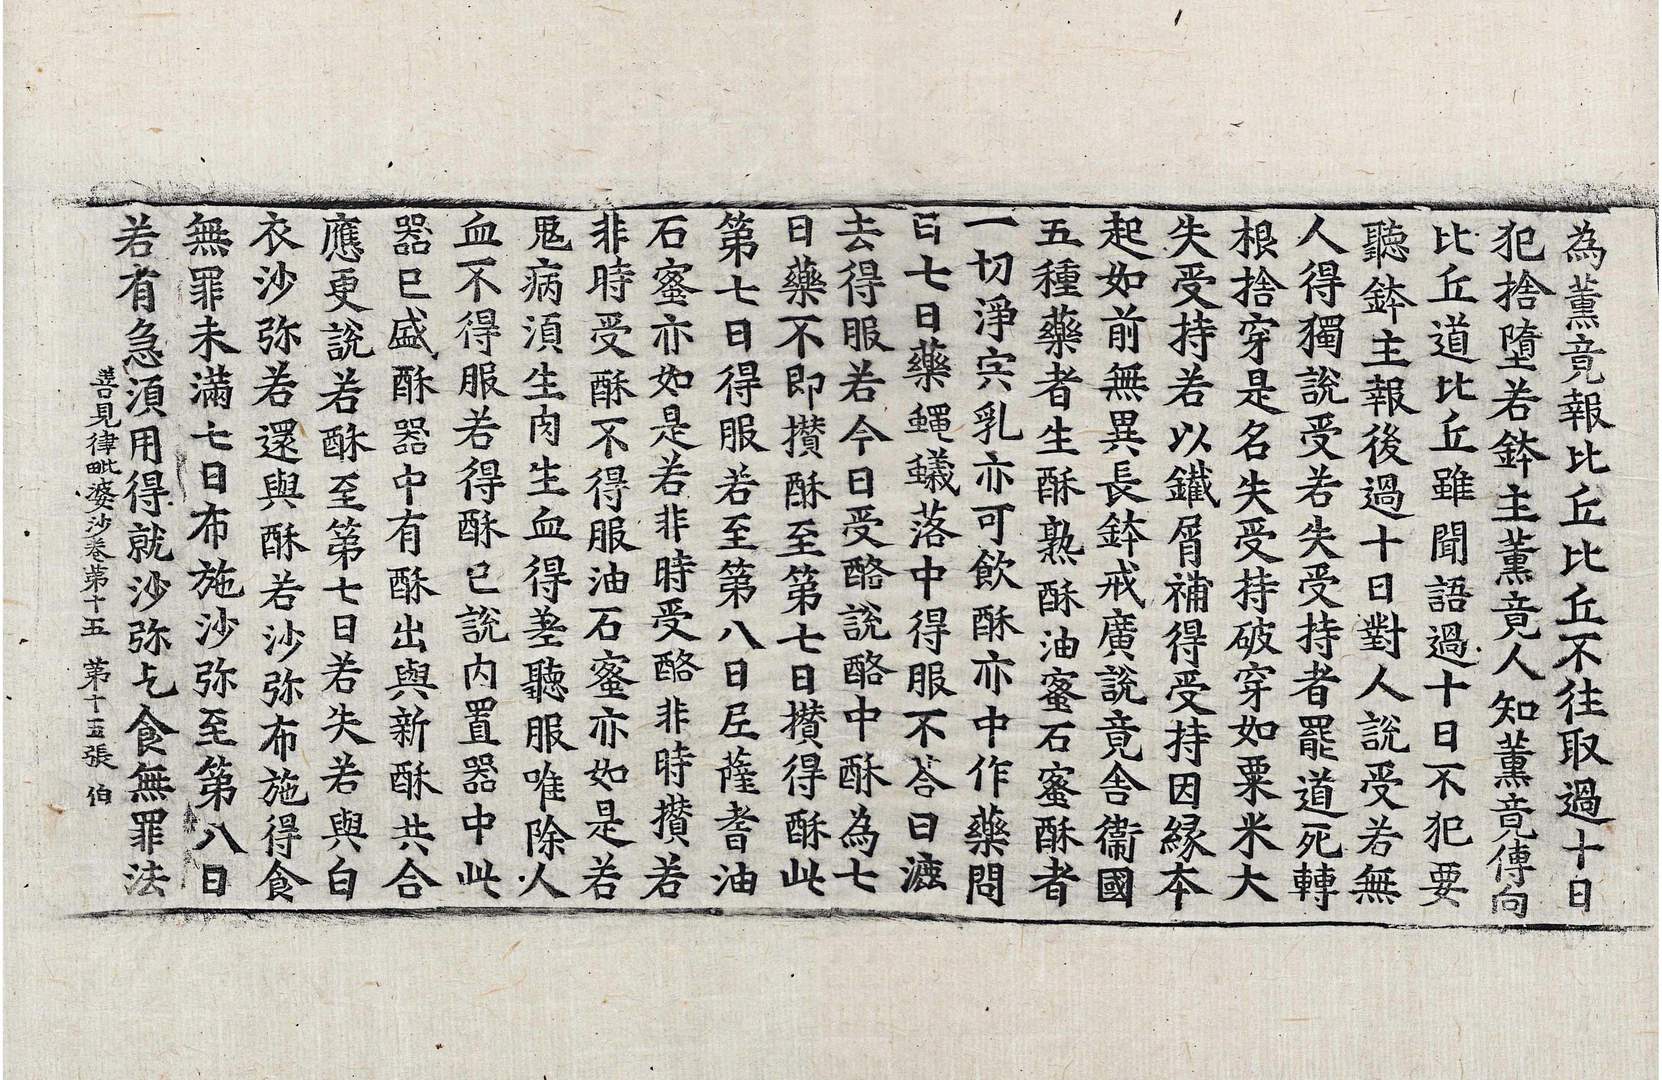 為薰竟報比丘比丘不往取過十日
犯捨墮若鉢主薰竟人知薰竟傳向
比丘道比丘雖聞語過十日不犯要
聽鉢主報後過十日對人說受若無
人得獨說受若失受持者罷道死轉
根捨穿是名失受持破穿如粟米大
失受持若以鐵屑補得受持因緣本
起如前無異長鉢戒廣說竟舍衛國
五種藥者生酥熟酥油蜜石蜜酥者
一切淨宍乳亦可飲酥亦中作藥問
曰七日藥蠅蟻落中得服不荅曰漉
去得服若今日受酪說酪中酥為七
日藥不即攢酥至第七日攢得酥此
第七日得服若至第八日尼薩耆油
石蜜亦如是若非時受酪非時攢若
非時受酥不得服油石蜜亦如是若
鬼病須生肉生血得差聽服唯除人
血不得服若得酥已說內置器中此
器已盛酥器中有酥出與新酥共合
應更說若酥至第七日若失若與白
衣沙弥若還與酥若沙弥布施得食
無罪未滿七日布施沙弥至第八日
若有急須用得就沙弥乞食無罪法
善見律毗婆沙卷第十五 第十五張 伯